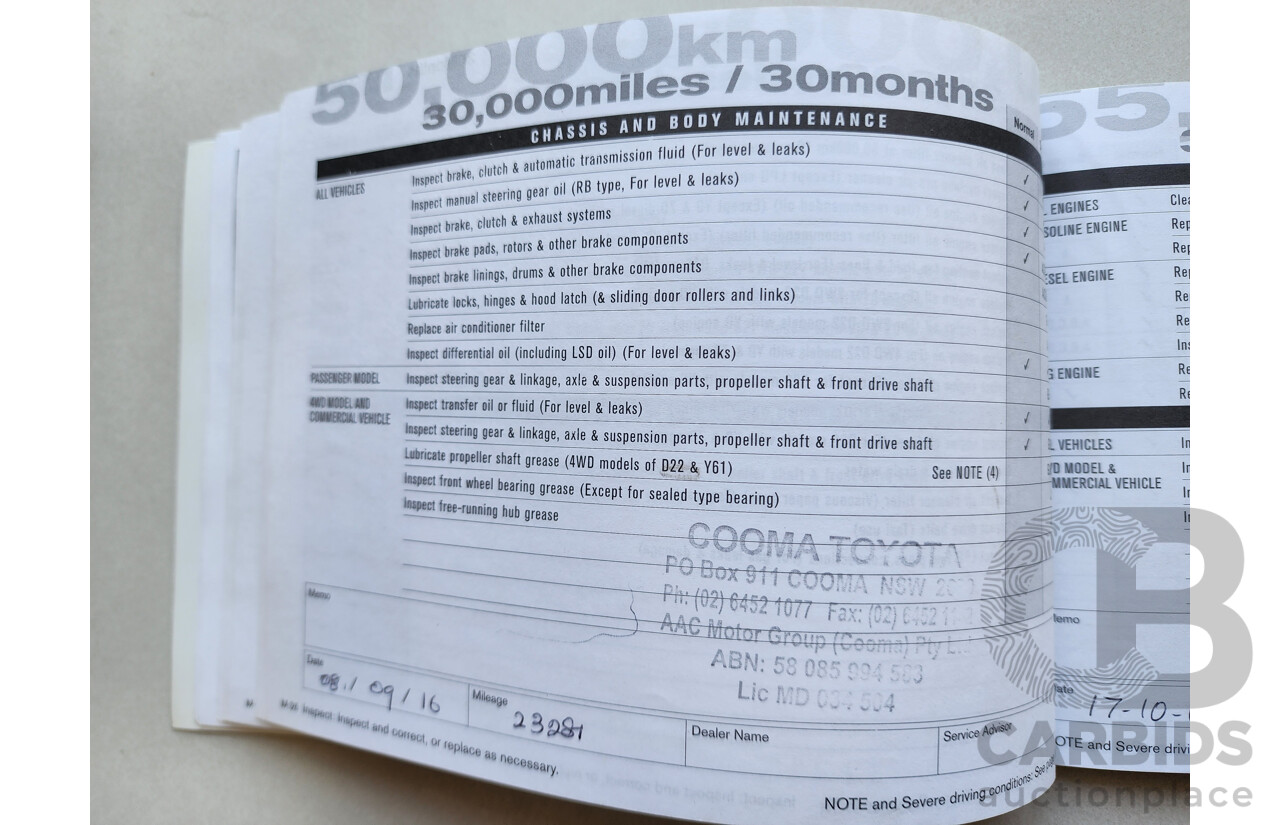 50,000km
30,000miles / 30months
CHASSIS AND BODY MAINTENANCE
Normal
ALL VEHICLES
Inspect brake, clutch & automatic transmission fluid (For level & leaks)
Inspect manual steering gear oil (RB type, For level & leaks) ✓
Inspect brake, clutch & exhaust systems ✓
Inspect brake pads, rotors & other brake components ✓
Inspect brake linings, drums & other brake components ✓
Lubricate locks, hinges & hood latch (& sliding door rollers and links)
Replace air conditioner filter
Inspect differential oil (including LSD oil) (For level & leaks) ✓
PASSENGER MODEL Inspect steering gear & linkage, axle & suspension parts, propeller shaft & front drive shaft
4WD MODEL AND
COMMERCIAL VEHICLE
Inspect transfer oil or fluid (For level & leaks) ✓
Inspect steering gear & linkage, axle & suspension parts, propeller shaft & front drive shaft ✓
Lubricate propeller shaft grease (4WD models of D22 & Y61) See NOTE (4)
Inspect front wheel bearing grease (Except for sealed type bearing)
Inspect free-running hub grease
COOMA TOYOTA
PO Box 911 COOMA NSW
Ph: (02) 6452 1077 Fax: (02) 6452
AAC Motor Group (Cooma) Pty
ABN: 58 085 994 583
Lic MD 034 504
Memo
Date
08/09/16
Mileage
23281
Dealer Name
Service Advisor
M-26 Inspect: Inspect and correct, or replace as necessary.
NOTE and Severe driving conditions: See
ENGINES
ENGINE
ENGINE
ENGINE
VEHICLES
MODEL &
VEHICLE
17-10-
NOTE and Severe
B
CARBIDS
auctionplace